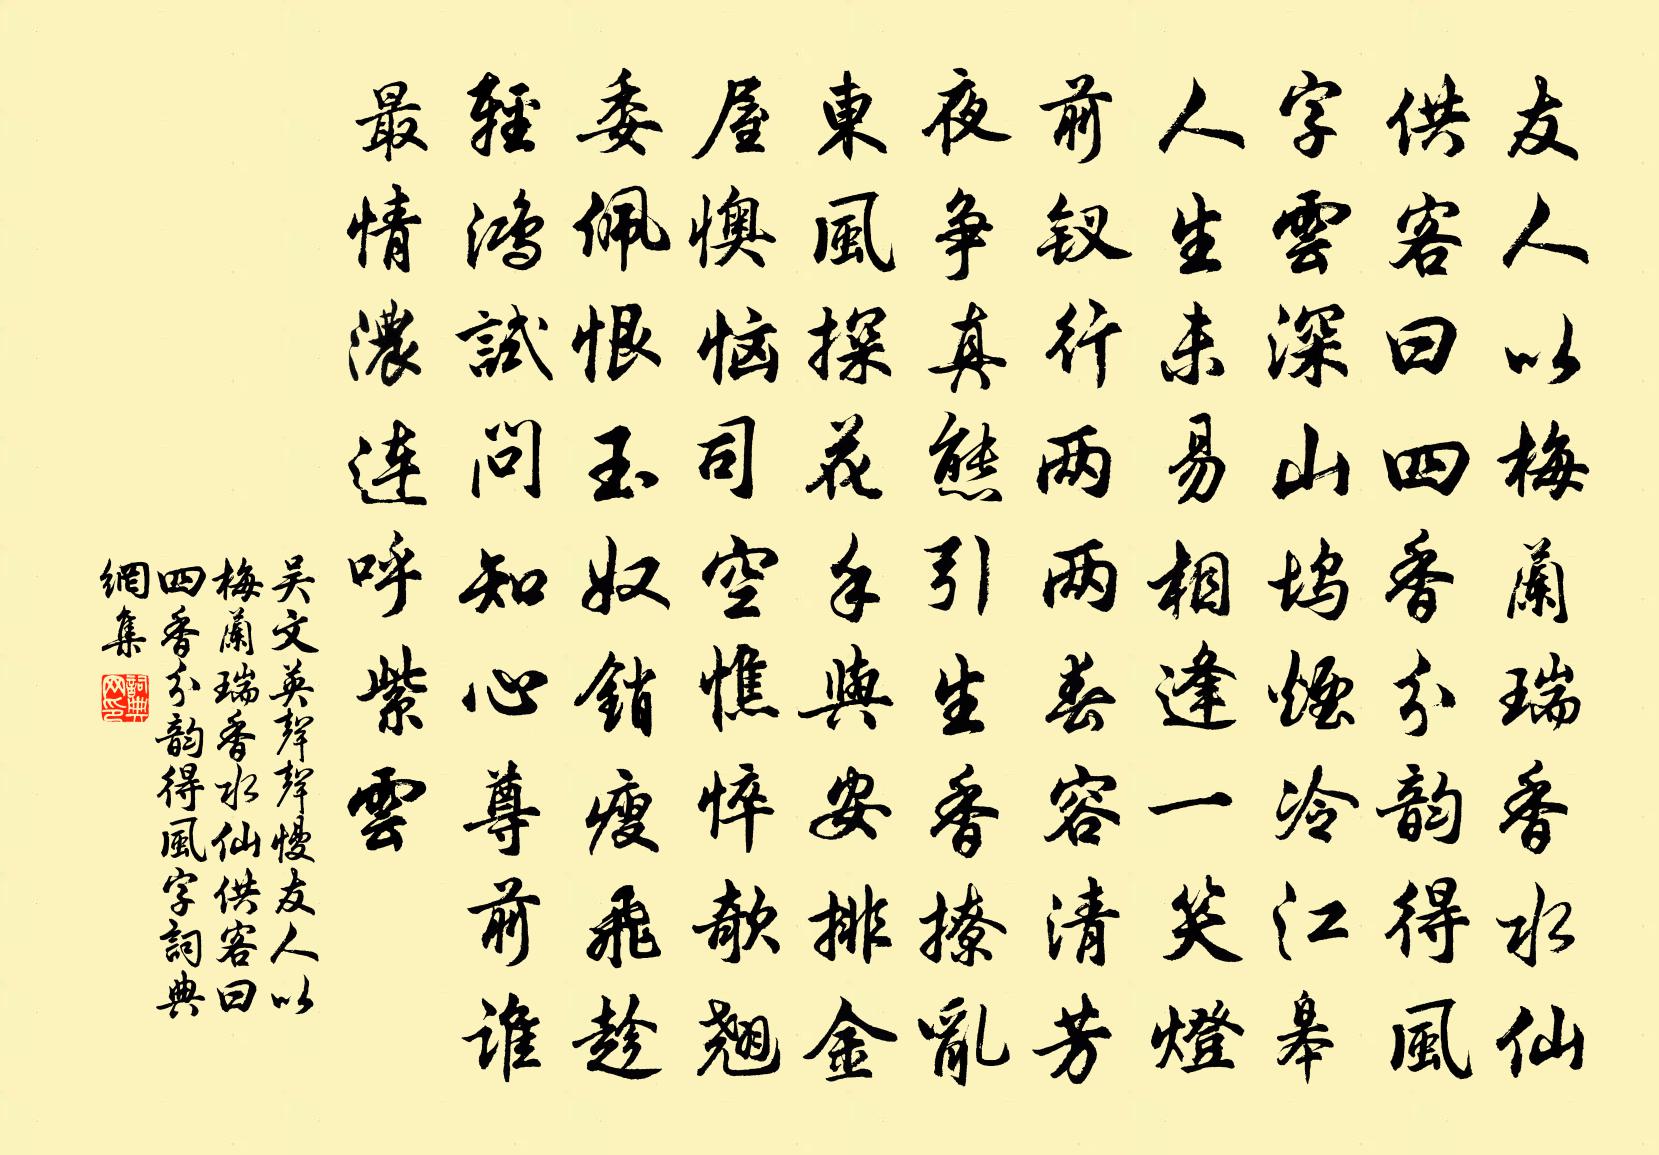 友人以梅蘭瑞香水仙
供客曰四香分韵得風
字雲深山坞煙冷江皋
人生未易相逢一笑燈
前钗行两两春容清芳
夜争真態引生香撩亂
東風探花手與安排金
屋懊恼司空憔悴欹翘
委佩恨玉奴銷瘦飛趁
輕鸿試問知心尊前誰
最情濃连呼紫雲
吴文英聲聲慢友人以
梅蘭瑞香水仙供客曰
四香分韵得風字詞典
網集
詞典网印